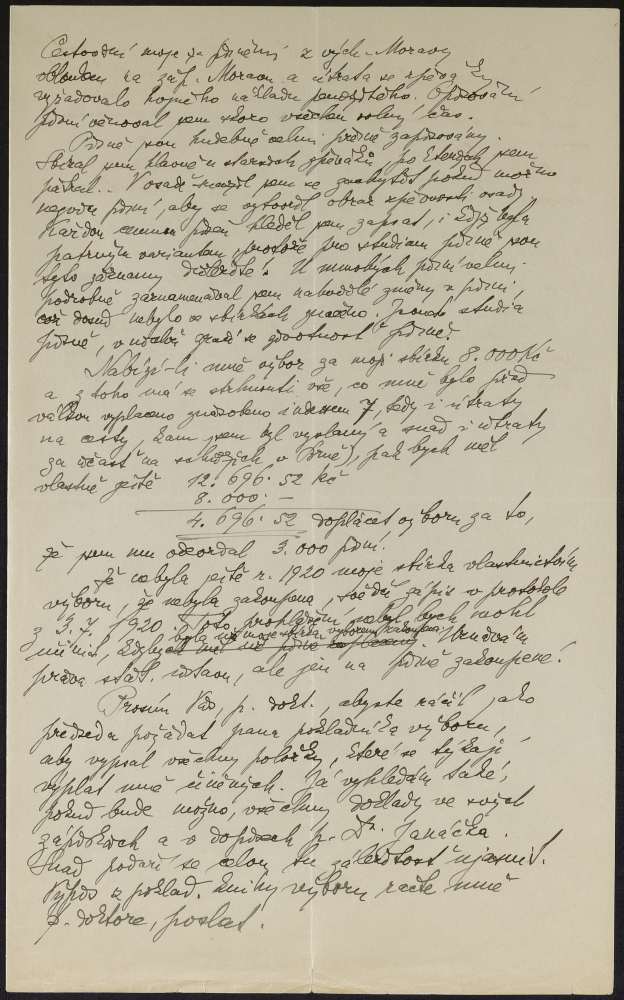 Cestování moje za písněmi z vých. Moravy
obloukem na záp. Moravu a útrata se zpěváky
vyžadovalo hojného nákladu peněžitého. Opisování
písní věnoval jsem skoro všechen volný čas.
Písně jsou hudebně velmi přesně zapisovány.
Sbíral jsem hlavně u starších zpěváků, po kterých jsem
pátral. V osadě snažil jsem se zachytiti pokud možno
nejvíce písní, aby se vytvořil obraz zpěvnosti osady.
Každou cennou píseň hleděl jsem zapsat, i když byla
patrným variantem, protože pro studium písně jsou
tyto záznamy důležité. U mnohých písní velmi
podrobně zaznamenával jsem nahodilé změny v písni,
což dosud nebylo ve sbírkách značeno.
písně,
Nabízí-li mně výbor za moji sbírku 8.000 Kč
a z toho má se strhnouti vše, co mně bylo před
válkou vyplaceno znásobeno indexem 7, tedy i útraty
na cesty, kam jsem byl vyslaný a snad i útraty
za účast na schůzích v Brně), pak bych měl
vlastně ještě 12.696·52 Kč
8.000·—
4.696·52 doplácet výboru za to,
že jsem mu odevzdal 3.000 písní.
Že nebyla ještě r. 1920 moje sbírka vlastnictvím
výboru, že nebyla zakoupena, svědčí zápis v protokole
z 3.7. 1920. Toto prohlášení nebyl bych mohl
byla už moje sbírka výborem zakoupena
učiniti, kdyby Uznávám
práva stát. ústavu, ale jen na písně zakoupené.
Prosím Vás, p. dokt., abyste ráčil jako
předseda požádat pana pokladníka výboru,
aby vypsal všechny položky, které se týkají
výplat mně činěných. Já vyhledám také,
pokud bude možno, všechny doklady ve svých
zápiskách a v dopisech p. Dr. Janáčka.
Snad podaří se celou tu záležitost ujasnit.
Výpis z poklad. knihy výboru račte mně
p. doktore, poslat.